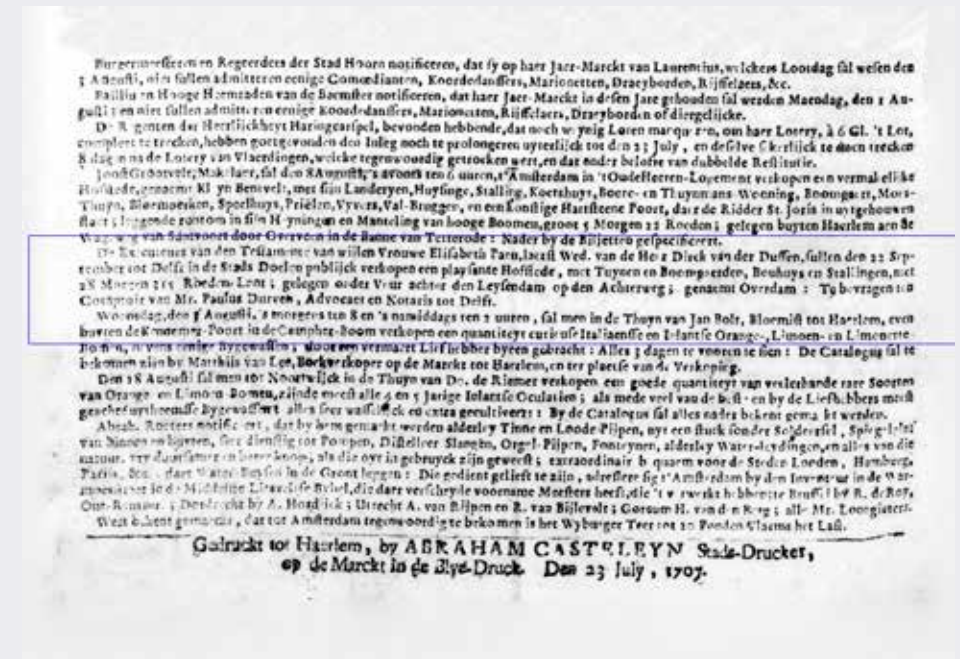 Burgermeesteren en Regeerders der Stad Hoorn notificeren, dat sy op haer Jaer-Marckt van Laurentius, welckers Loosdag sal wesen den
5 Augusti, niet sullen admitteren eenige Comedianten, Koordedanssers, Marionetten, Draeyborden, Rijffelaers, &c.
Bailliu en Hooge Heemraden van de Beemster notificeren, dat haer Jaer-Marckt in desen Jare gehouden sal werden Maendag, den 1 Au-
gusti; en niet sullen admitteren eenige Koordedanssers, Marionetten, Rijffelaers, Draeyborden of diergelijcke.
De Regenten der Heerlijckheyt Haringcarspel, bevonden hebbende, dat noch weynig Loten om haer Lotery, à 6 Gl. 't Lot,
compleet te trecken, hebben goetgevonden den Inleg noch te prolongeren uyterlijck tot den 23 July, en deselve sekerlijck te doen trecken
8 dagen na de Lotery van Vlaerdingen, welcke tegenwoordig getrocken wert, en dat onder belofte van dubbelde Restitutie.
Joost Grootvelt, Makelaer, sal den 8 Augusti, 's avonts ten 6 uuren, t'Amsterdam in 't Oude Heeren-Logement verkopen een vermakelijke
Hofstede, genaemt Kleyn Bentvelt, met sijn Landeryen, Huysinge, Stalling, Koetshuys, Boere- en Thuynmans-Wooning, Boomgaert, Moes-
Thuyn, Bloemperken, Speelhuys, Priëlen, Vyvers, Val-Bruggen, en een konstige Hartsteene Poort, daer de Ridder St. Joris in uytgehouwen
staet; leggende rontom in sijn Heyningen en Manteling van hooge Boomen, groot 5 Morgen 22 Roeden; gelegen buyten Haerlem aen de
Wageweg van Santvoort door Overveen in de Banne van Tetterode: Nader by de Biljetten gespecificeert.
De Executeurs van den Testamente van wijlen Vrouwe Elisabeth Parn, laetst Wed. van de Heer Dirck van der Dussen, sullen den 22 Sep-
tember tot Delft in de Stads Doelen publijck verkopen een playsante Hofstede, met Tuynen en Boomgaerden, Bouhuys en Stallingen, met
28 Morgen 215 Roeden Lant; gelegen onder Veur achter den Leytsendam op den Achterweg; genaemt Overdam: Te bevragen ten
Comptoir van Mr. Paulus Durven, Advocaet en Notaris tot Delft.
Woensdag, den 3 Augusti, 's morgens ten 8 en 's namiddags ten 2 uuren, sal men in de Thuyn van Jan Bolt, Bloemist tot Haerlem, even
buyten de Kennemer-Poort in de Campher-Boom verkopen een quantiteyt curieuse Italiaensse en Infantse Orange-, Limoen- en Limonette-
Bomen, nevens eenige Bygewassen; door een vermaert Liefhebber byeen gebracht: Alles 3 dagen te vooren te sien: De Catalogus sal te
bekomen zijn by Matthijs van Lee, Boekverkoper op de Marckt tot Haerlem, en ter plaetse van de Verkoping.
Den 18 Augusti sal men tot Noortwijck in de Thuyn van Do. de Riemer verkopen een goede quantiteyt van verscherhande rare Soorten
van Orange- en Limoen-Bomen, zijnde meest alle 4 en 5 jarige Infantse Oculatien; als mede veel van de beste en by de Liefhebbers meest
geachte uytheemsse Bygewassen: alles seer wasselijck en extra gecultiveert: By de Catalogus sal alles nader bekent gemaeckt werden.
Abrah. Roeters notificeert, dat by hem gemaeckt werden alderley Tinne en Loode Pijpen, uyt een stuck sonder Soldeersel, Spiegelglat
van binnen en buyten, seer dienstig tot Pompen, Distilleer Slangen, Orgel-Pijpen, Fonteynen, alderley Water-leydingen, en alles van die
natuur, veel duursamer en beter koop, als die oyt in gebruyck zijn geweest; extraordinair bequaem voor de Steden Londen, Hamburg,
Parijs, &c. daer Water-Buysen in de Gront leggen: Die gedient gelieft te zijn, adressere sig t'Amsterdam by den Inventeur in de War-
moesstraet in de Bybel, die daer verscheyde voorname Meesters heeft, die 't werckt hebben; te Brussel by R. de Roy,
Dordrecht by A. Utrecht A. van Rijpen en R. van Bijlevelt; Gorcum H. van den Berg; alle Mr. Loogieters.
Wert bekent gemaeckt, dat tot Amsterdam tegenwoordig te bekomen is het Wyburger Teer tot 20 Ponden Vlaems het Last.
Gedruckt tot Haerlem, by ABRAHAM CASTELEYN Stads-Drucker,
op de Marckt in de Blye-Druck. Den 23 July, 1707.